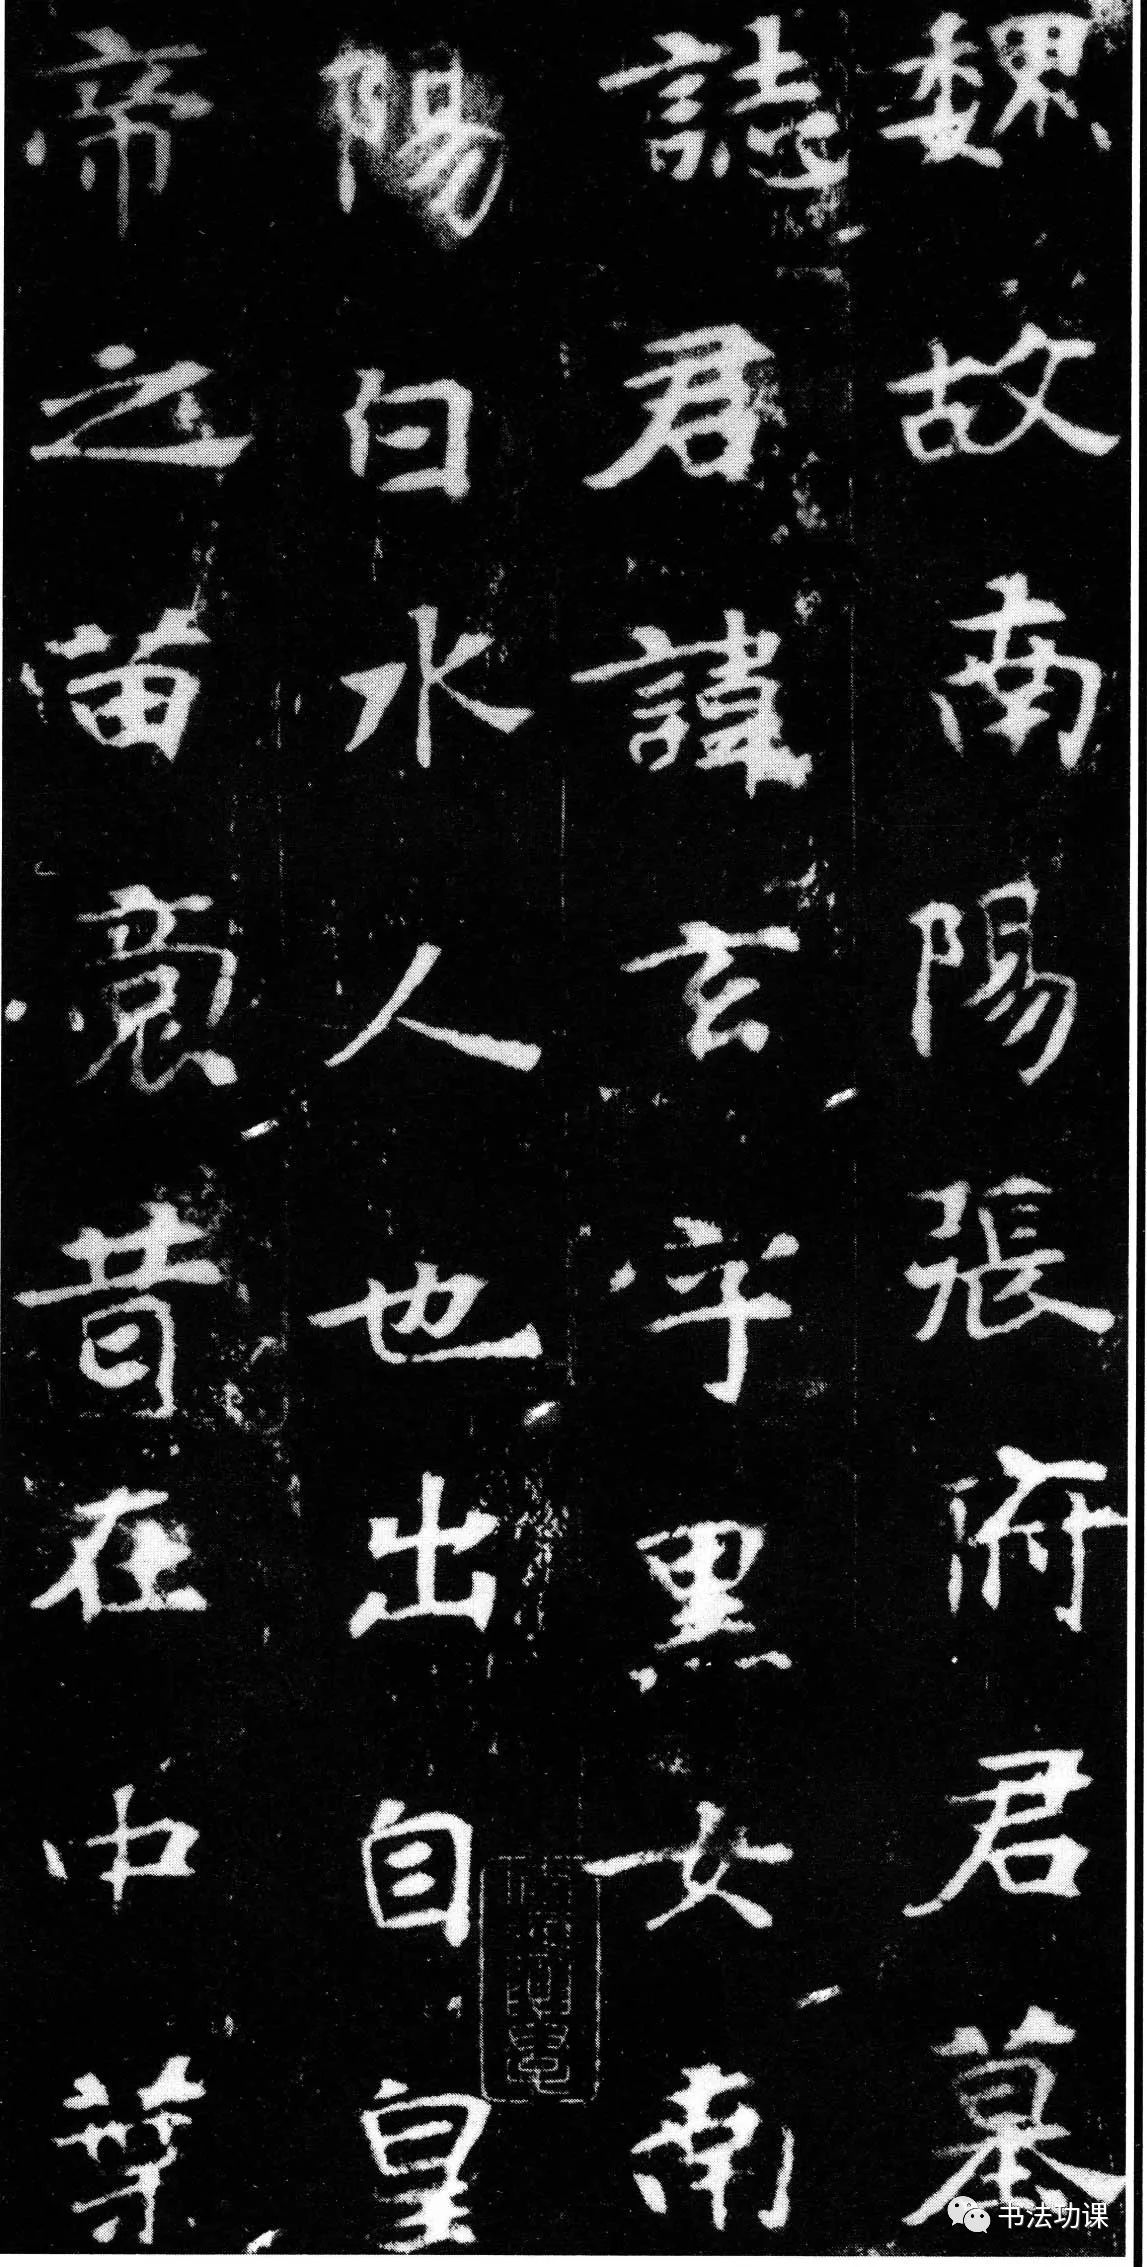 魏故南陽張府君墓
誌君諱玄字黑女南
陽白水人也出自皇
帝之苗裔昔在中葉
书法功课